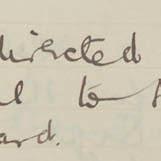 directed
to
ard.